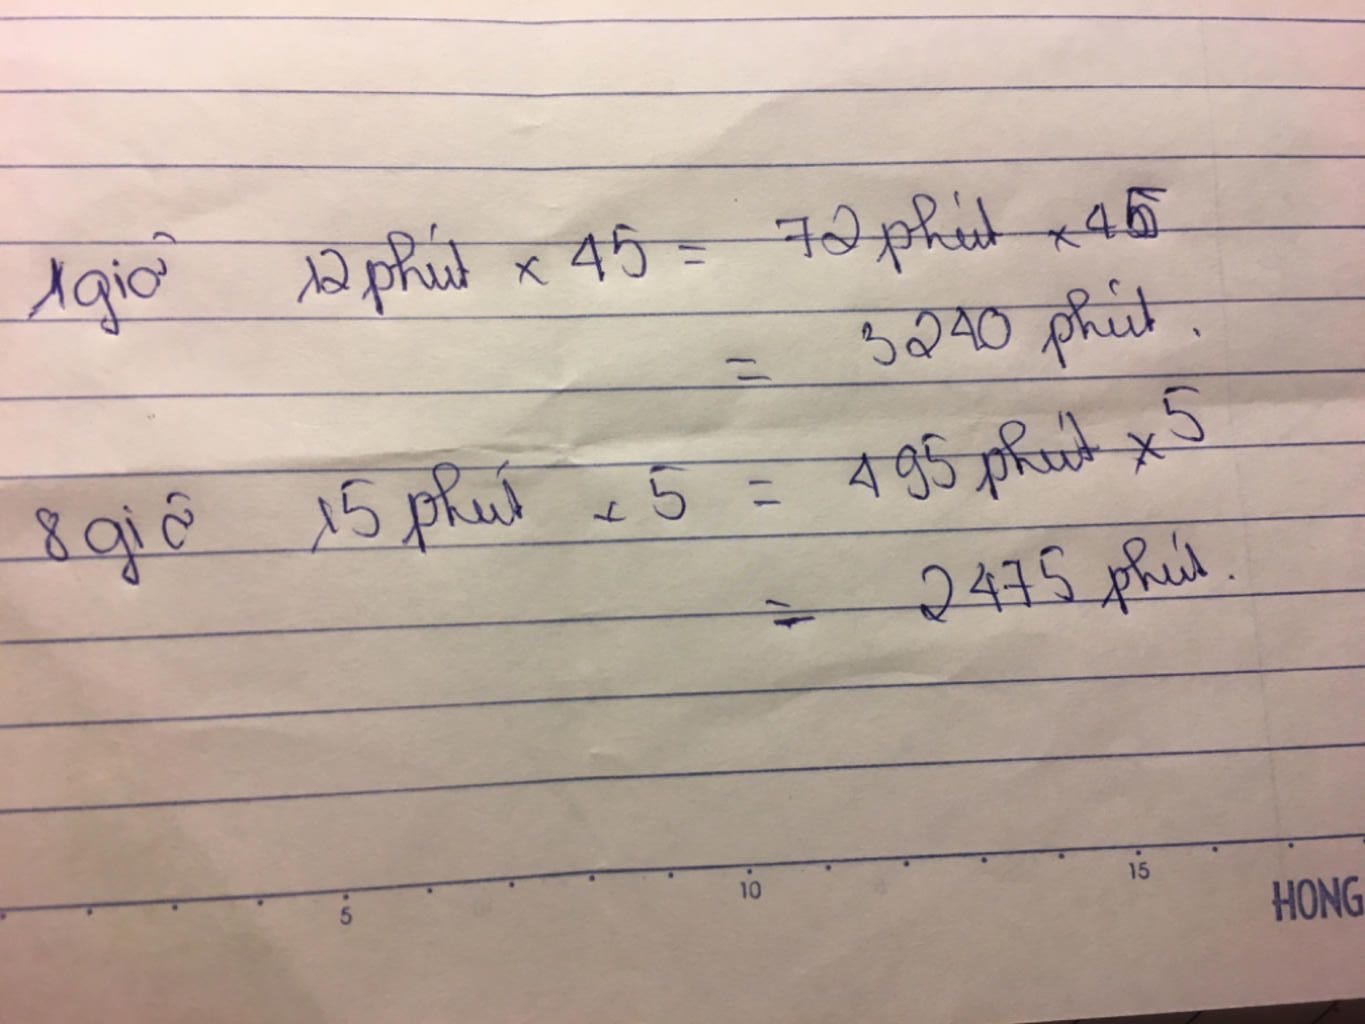 1 giờ 12 phút × 45 = 72 phút × 45
= 3240 phút.
8 giờ 15 phút × 5 = 495 phút × 5
= 2475 phút.
5 10 15
HONG